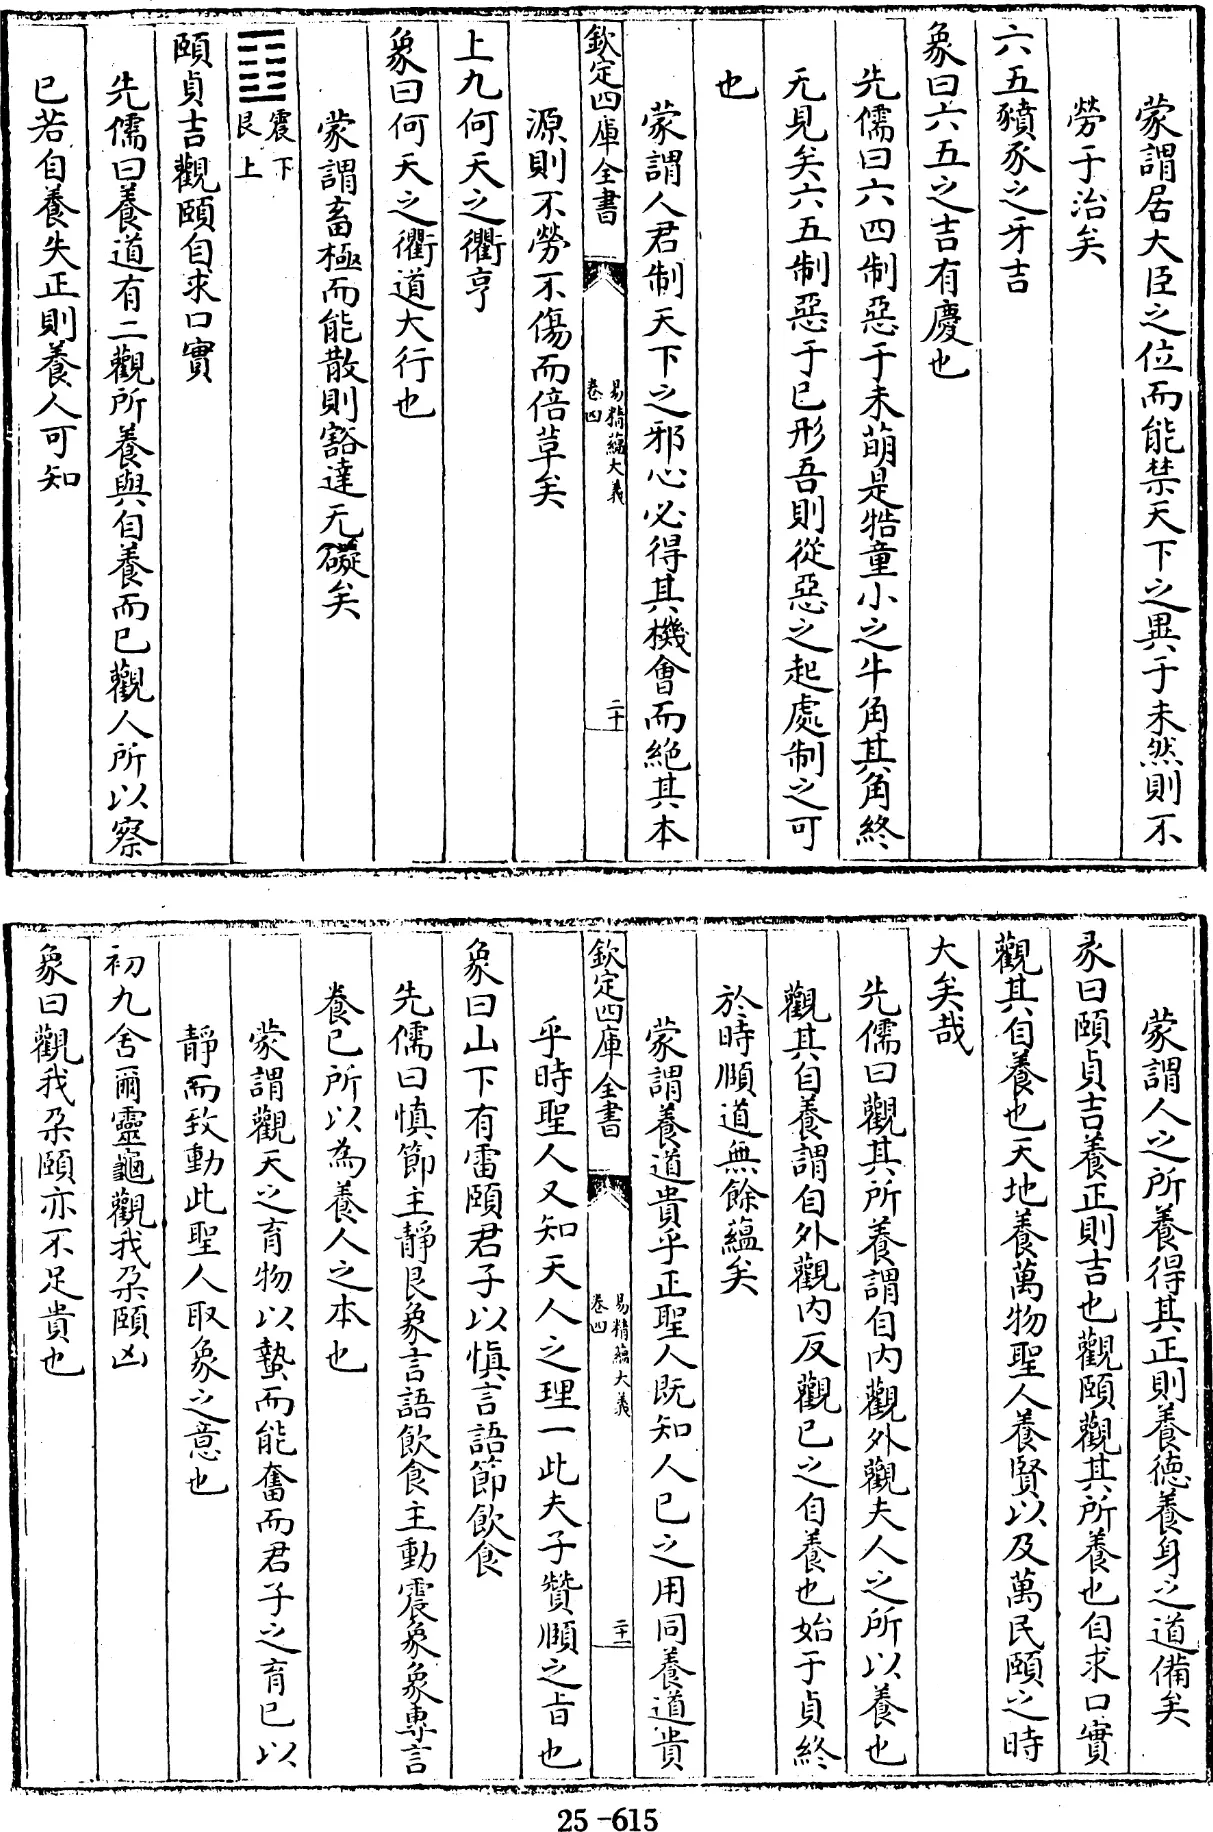 蒙謂居大臣之位而能禁天下之異于未然則不
勞于治矣
六五豶豕之牙吉
象曰六五之吉有慶也
先儒曰六四制惡于未萌是牿童小之牛角其角終
无見矣六五制惡于已形吾則從惡之起處制之可
也
蒙謂人君制天下之邪心必得其機會而絶其本
欽定四庫全書
易精蘊大義
卷四
二十
源則不勞不傷而倍草矣
上九何天之衢亨
象曰何天之衢道大行也
蒙謂畜極而能散則豁達无礙矣
震下
艮上
頤貞吉觀頤自求口實
先儒曰養道有二觀所養與自養而已觀人所以察
已若自養失正則養人可知
蒙謂人之所養得其正則養德養身之道備矣
彖曰頤貞吉養正則吉也觀頤觀其所養也自求口實
觀其自養也天地養萬物聖人養賢以及萬民頤之時
大矣哉
先儒曰觀其所養謂自内觀外觀夫人之所以養也
觀其自養謂自外觀内反觀已之自養也始于貞終
於時順道無餘蘊矣
蒙謂養道貴乎正聖人既知人已之用同養道貴
欽定四庫全書
易精蘊大義
卷四
二十一
乎時聖人又知天人之理一此夫子贊順之旨也
象曰山下有雷頤君子以慎言語節飲食
先儒曰慎節主靜艮象言語飲食主動震象象專言
養已所以為養人之本也
蒙謂觀天之育物以蟄而能奮而君子之育已以
靜而致動此聖人取象之意也
初九舍爾靈龜觀我朶頤凶
象曰觀我朶頤亦不足貴也
25-615